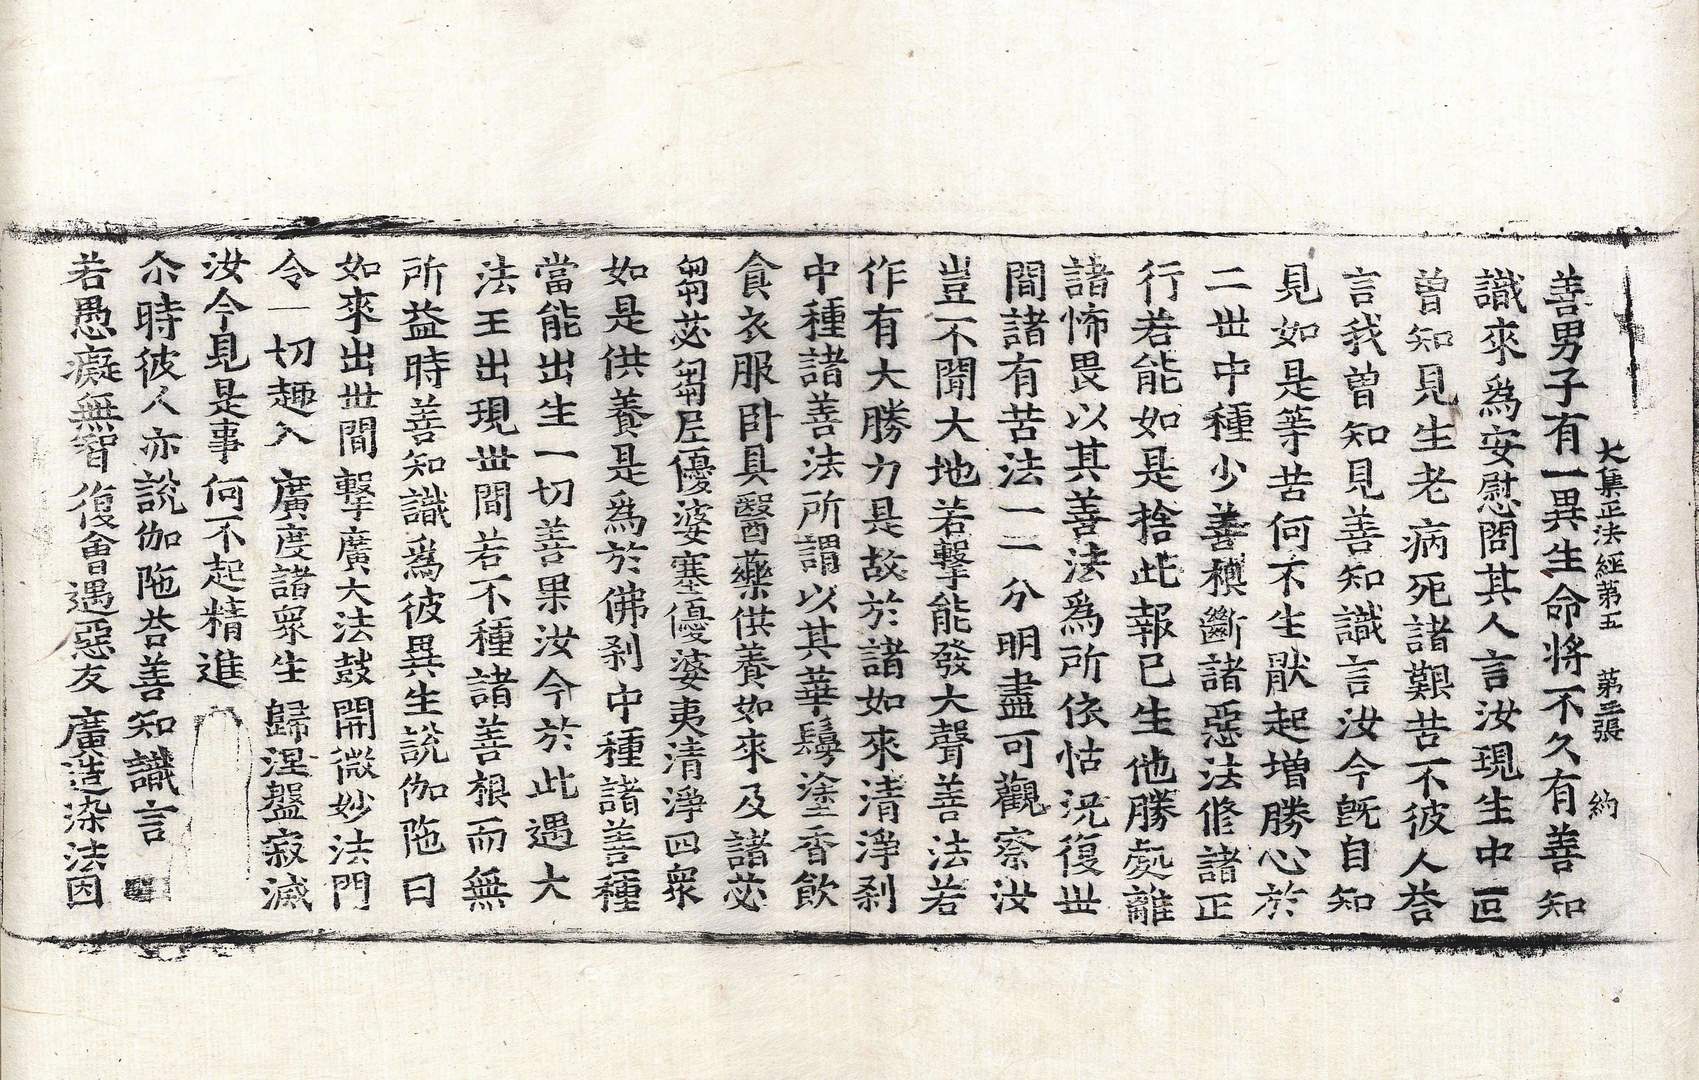 大集正法經第五　第三張　約
善男子有一異生命將不久有善知
識來爲安慰問其人言汝現生中叵
曾知見生老病死諸艱苦不彼人荅
言我曾知見善知識言汝今既自知
見如是等苦何不生猒起增勝心於
二世中種少善種斷諸惡法修諸正
行若能如是捨此報已生他勝處離
諸怖畏以其善法爲所依怙況復世
間諸有苦法一一分明盡可觀察汝
豈不聞大地若擊能發大聲善法若
作有大勝力是故於諸如來清淨刹
中種諸善法所謂以其華鬘塗香飲
食衣服卧具醫藥供養如來及諸苾
芻苾芻尼優婆塞優婆夷清淨四衆
如是供養是爲於佛刹中種諸善種
當能出生一切善果汝今於此遇大
法王出現世間若不種諸善根而無
所益時善知識爲彼異生說伽陁曰
如來出世間擊廣大法鼓開微妙法門
令一切趣入廣度諸衆生歸涅盤寂滅
汝今見是事何不起精進
尒時彼人亦說伽陁荅善知識言
若愚癡無智復會遇惡友廣造染法因